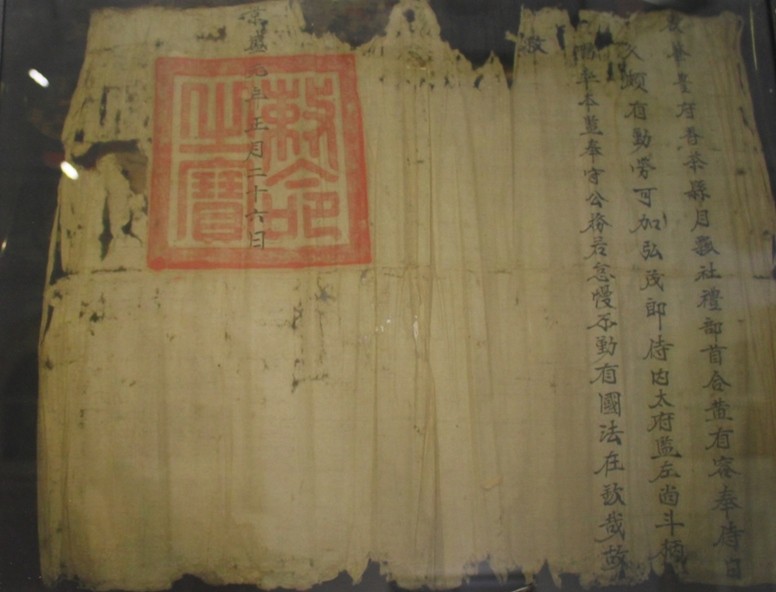 華府縣月瓢社禮部首合黃有容奉侍日
久頗有勤勞可加弘茂郎侍内太府監左尚斗柄
率本監奉守公務若怠慢不勤有國法在欽哉故
敕
景盛元年正月二十六日
敕命之寶